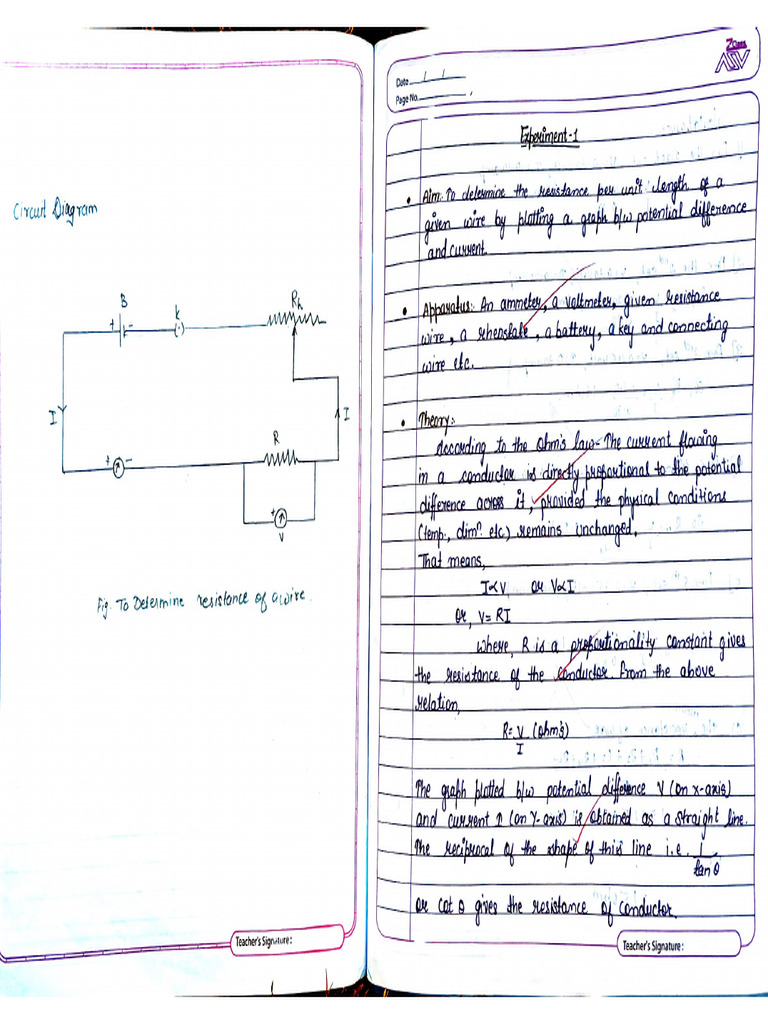 Circuit Diagram
B
+ -
K
(·)
Rh
I
I
R
+ -
+
V
Fig. To Determine resistance of a wire.
Teacher's Signature:
Date / /
Page No.
Experiment-1
• Aim: To determine the resistance per unit length of a
given wire by plotting a graph b/w potential difference
and current.
• Apparatus: An ammeter, a voltmeter, given resistance
wire, a rheostate, a battery, a key and connecting
wire etc.
• Theory:
According to the Ohm's law- The current flowing
in a conductor is directly proportional to the potential
difference across it, provided the physical conditions
(temp., dimⁿ. etc.) remains unchanged.
That means,
I∝V, or V∝I
or, V=RI
where, R is a proportionality constant gives
the resistance of the conductor. From the above
relation,
R= V/I (ohm's)
The graph plotted b/w potential difference V (on x-axis)
and current I (on Y-axis) is obtained as a straight line.
The reciprocal of the shape of this line i.e. 1/tan θ
or cot θ gives the resistance of conductor.
Teacher's Signature: